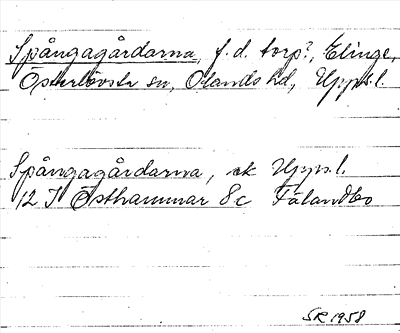 Spångagårdarna, f.d. torp?, Elinge,
Österlövsta sn, Olands hd, Uppsl.
Spångagårdarna, ek Uppsl.
12 I Östhammar 8c Fälandbo
SR 1958